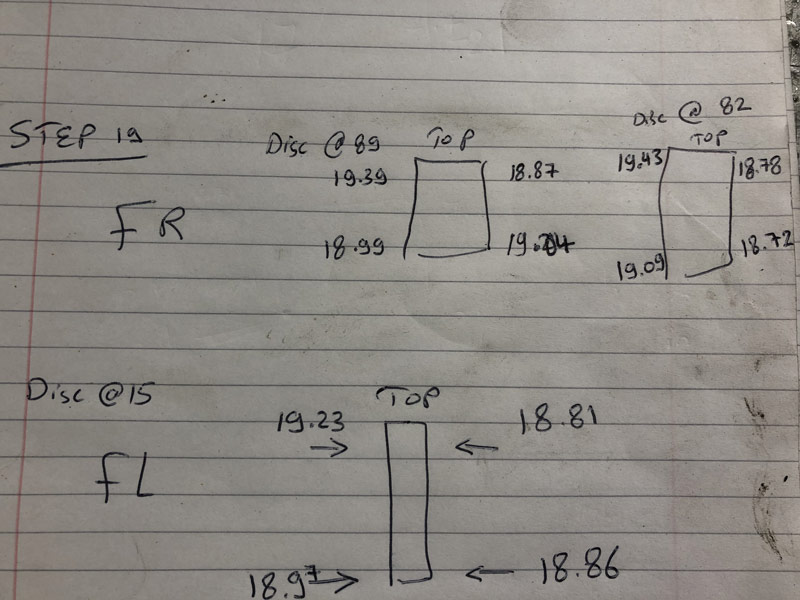 STEP 19
Disc @ 89
TOP
19.39
18.87
18.99
FR
Disc @ 82
TOP
19.43
18.78
19.09
18.72
Disc @ 15
TOP
19.23
18.81
FL
18.97
18.86